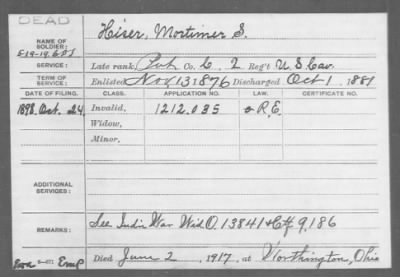 DEAD
Hiser, Mortimer S.
NAME OF SOLDIER:
SERVICE: Late rank, Pvt Co. L, 2 Reg't U S Cav.
TERM OF SERVICE: Enlisted Nov 13 1876 Discharged Oct 1, 1881
DATE OF FILING. CLASS. APPLICATION NO. LAW. CERTIFICATE NO.
1898. Oct. 24 Invalid, 1212.035 R.E.
Widow,
Minor,
ADDITIONAL SERVICES:
REMARKS: See India War Wid O. 13841 & Ctf 9,186
Died June 2, 1917, at Worthington, Ohio